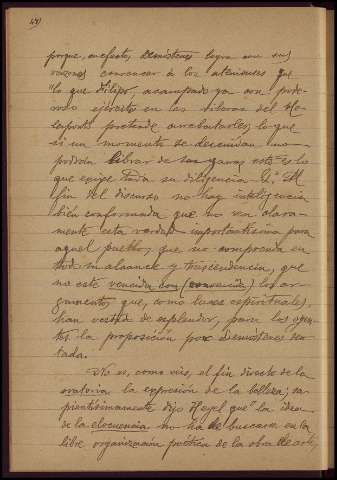 porque, en efecto, Demóstenes logra con sus
razones convencer á los atenienses que
"lo que Filipo, acampado ya con pode-
roso ejército en las riberas del He-
lesponto pretende arrebatarles, lo que
si un momento se descuidan no
podrán librar de sus garras esto es lo
que exige toda su diligencia". Al
fin del discurso no hay inteligencia
bien conformada que no vea clara-
mente esta verdad importantísima para
aquel pueblo, que no comprenda en
todo su alcance y trascendencia, que
no esté vencida con (convencida) los ar-
gumentos que, como luces espirituales,
han vestido de esplendor, para los oyen-
tes la proposición por Demóstenes sen-
tada.
No es, como vice, el fin directo de la
oratoria la expresión de la belleza; sa-
pientísimamente dijo Hegel que "la idea
de la elocuencia no ha de buscarse en la
libre organización poética de la obra de arte,